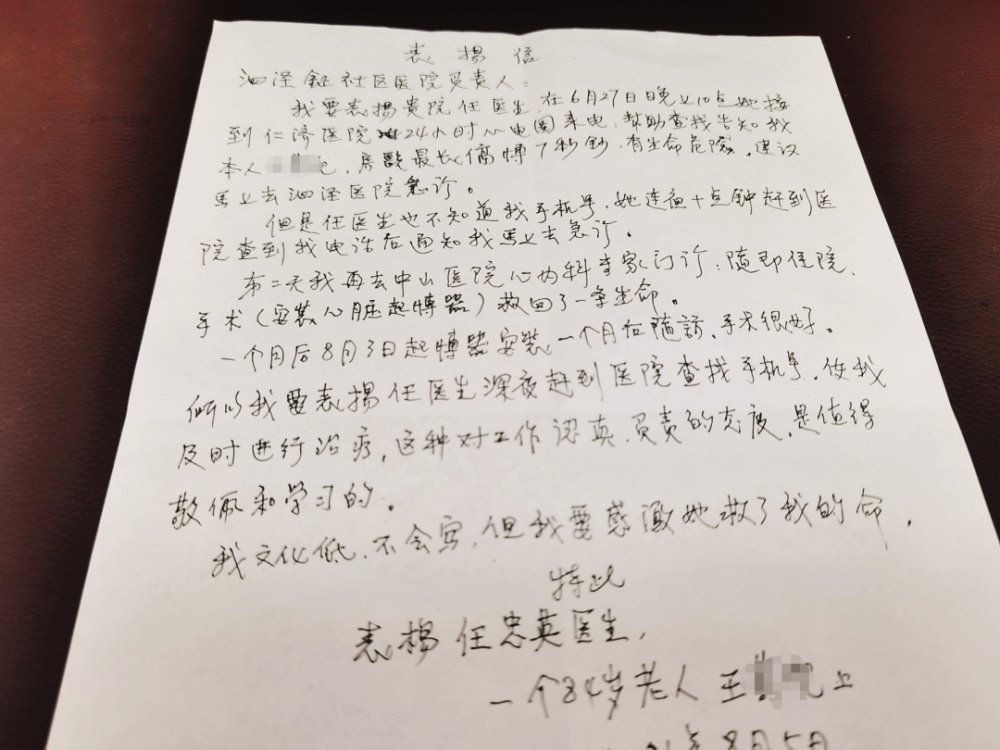 表揚信
泗泾镇社区医院负责人：
我要表揚贵院任医生，在6月27日晚上10点她接
到仁济医院24小时心电图来电，幫助查找告知我
本人，房颤最长停博7秒钞，有生命危險，建议
馬上去泗泾医院急诊。
但是任医生也不知道我手机号，她连夜十点钟赶到医
院查到我电话后通知我馬上去急诊。
第二天我再去中山医院心内科专家门诊，随即住院，
手术（安装心脏起博器）救回了一条生命。
一个月后8月3日起博器安裝一个月后随訪，手术很好。
所以我要表揚任医生深夜赶到医院查找手机号，使我
及时进行治疗，这种对工作認真、负责的态度，是值得
敬佩和学习的。
我文化低，不会写，但我要感激她救了我的命，
特此
表楊任忠英医生，
一个84岁老人王上
年8月5日